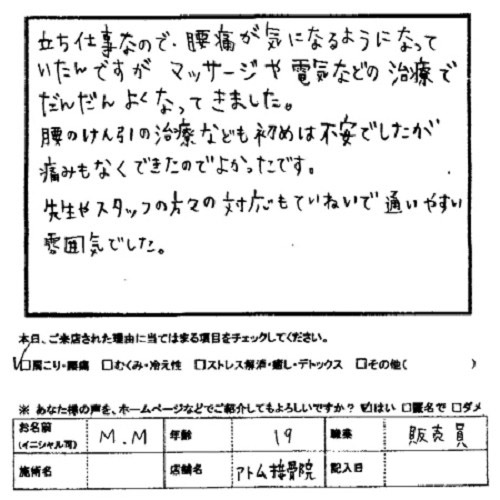 立ち仕事なので、腰痛が気になるようになって
いたんですが マッサージや電気などの治療で
だんだんよくなってきました。
腰のけん引の治療なども初めは不安でしたが
痛みもなくできたのでよかったです。
先生やスタッフの方々の対応もていねいで通いやすい
雰囲気でした。
本日、ご来店された理由に当てはまる項目をチェックしてください。
☑肩こり・腰痛 □むくみ・冷え性 □ストレス解消・癒し・デトックス □その他( )
※ あなた様の声を、ホームページなどでご紹介してもよろしいですか? ☑はい □匿名で □ダメ
お名前(イニシャル可) M.M 年齢 19 職業 販売員
施術名 店舗名 アトム接骨院 記入日